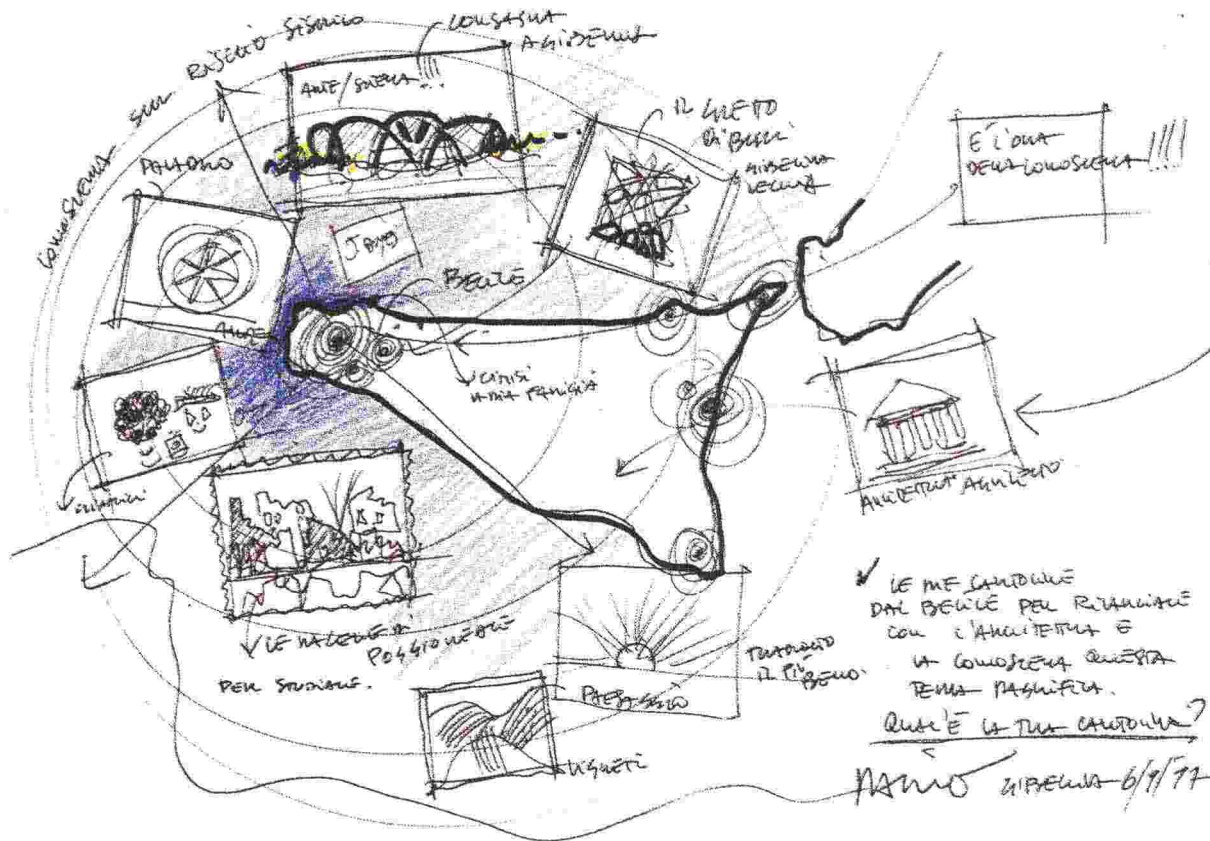 CONOSCENZA SUL RISCHIO SISMICO
CONSAGRA
A GIBELLINA
ARTE/STELLA !!!
IL CRETO
DI BURRI
GIBELLINA
VECCHIA
È L'ORA
DELLA CONOSCENZA !!!!
BELICE
CINISI
LA MIA FAMIGLIA
LE MACERIE DI
POGGIOREALE
PER STUDIARE.
TRAMONTO
IL PIÙ
BELLO.
PAESAGGIO
VIGNETI
LE MIE CARTOLINE
DAL BELICE PER RILANCIARE
CON L'ARCHITETTURA E
LA CONOSCENZA QUESTA
TERRA MAGNIFICA.
QUAL'È LA TUA CARTOLINA?
GIBELLINA